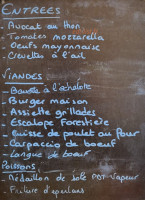 ENTREES
- Avocat au thon
- Tomates mozzarella
- Oeufs mayonnaise
- Crevettes à l'ail
VIANDES
- Bavette à l'échalote
- Burger maison
- Assiette grillades
- Escalope Forestière
- Cuisse de poulet au four
- Carpaccio de boeuf
- Langue de boeuf
Poissons
- Médaillon de lotte vapeur
- Friture d'éperlans